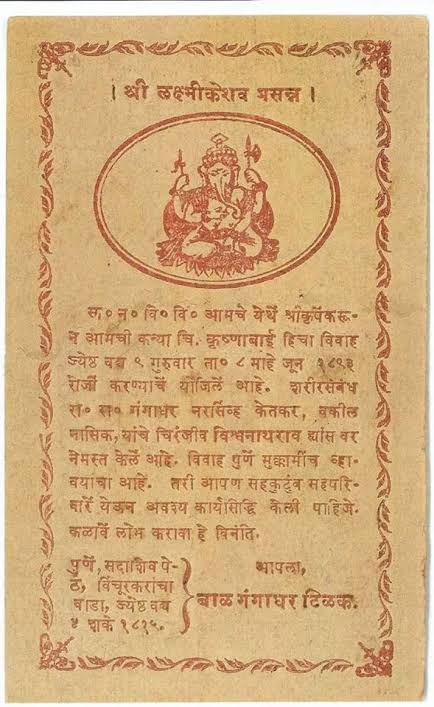 । श्री लक्ष्मीकेशव प्रसन्न ।
स० न० वि० वि० आमचे येथें श्रीकृपेंकरू-
न आमची कन्या चि. कृष्णाबाई हिचा विवाह
ज्येष्ठ वद्य ९ गुरुवार ता० ८ माहे जून १८९३
रोजीं करण्याचें योजिलें आहे. शरीरसंबंध
रा० रा० गंगाधर नरसिंव्ह केतकर, वकील
नासिक, यांचे चिरंजीव विश्वनाथराव ह्यांस वर
नेमस्त केलें आहे. विवाह पुणें मुक्कामींच व्हा-
वयाचा आहे. तरी आपण सहकुटुंब सहपरि-
वारें येऊन अवश्य कार्यसिद्धि केली पाहिजे.
कळावें लोभ करावा हे विनंति.
पुणें, सदाशिव पे-
ठ, विंचूरकरांचा
वाडा, ज्येष्ठ वद्य
४ शके १८१५.
आपला,
बाळ गंगाधर टिळक.